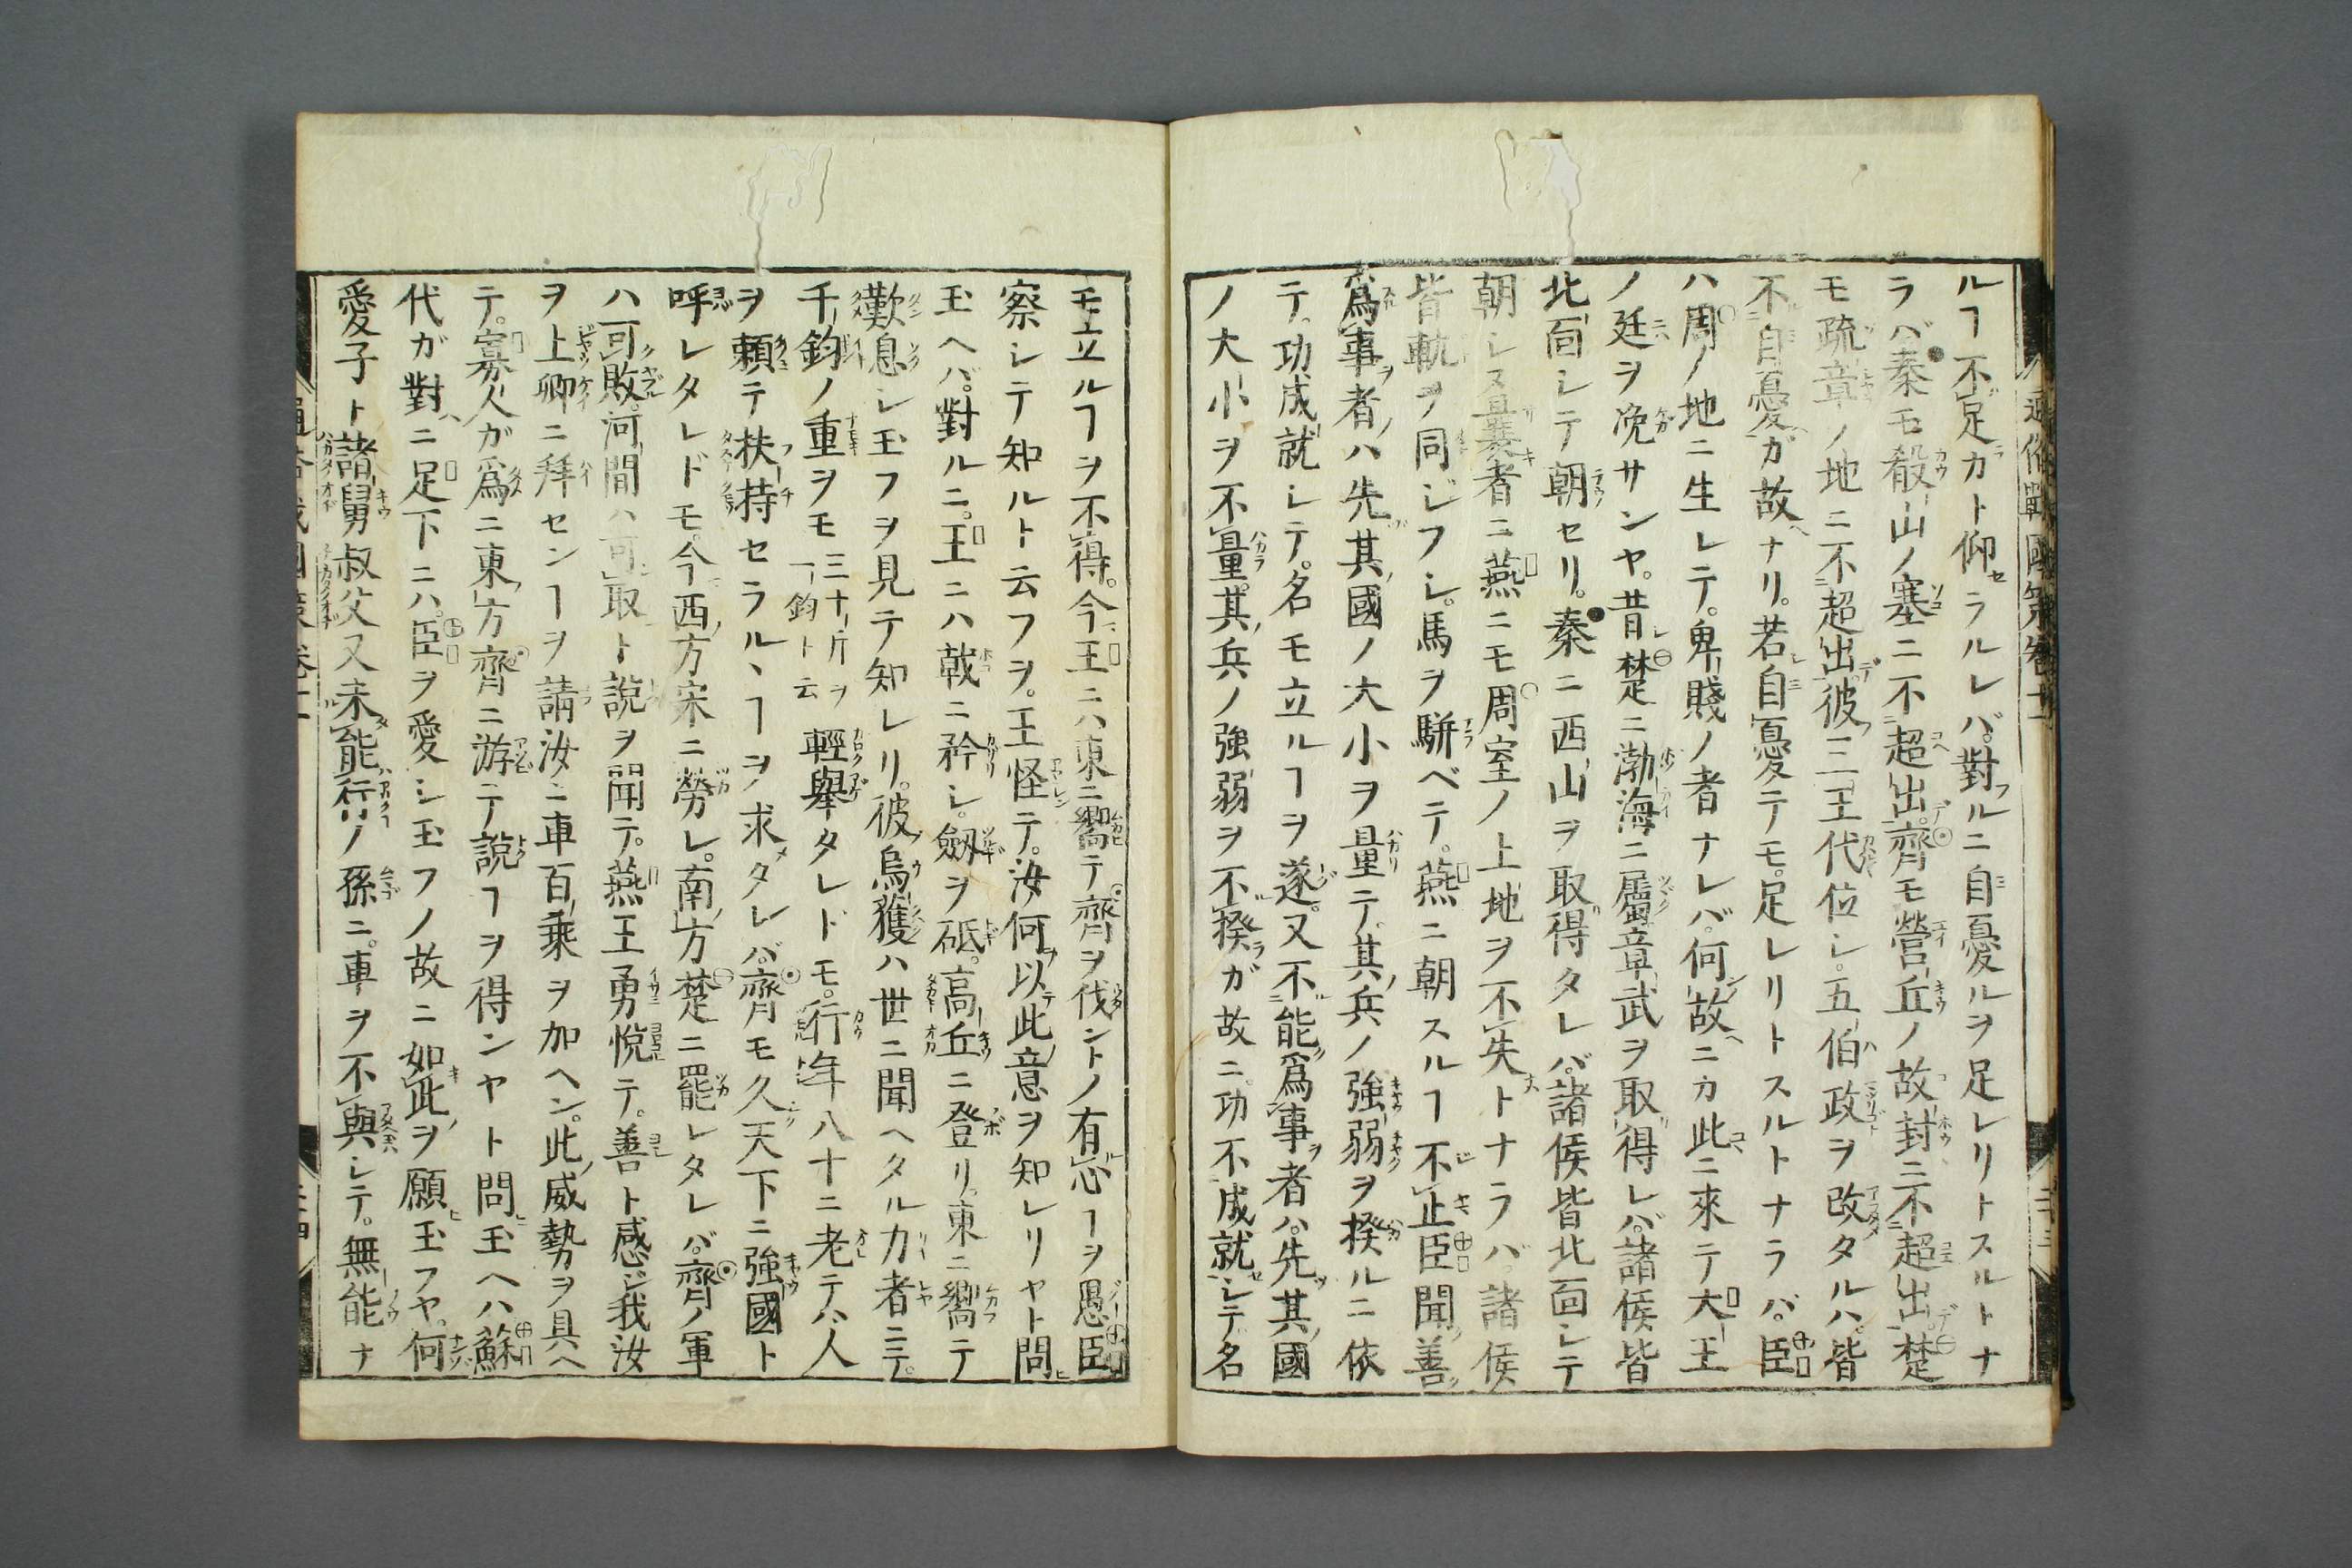 ルヿ不足カト仰ラルレバ。對ルニ自憂ルヲ足レリトスルトナ
ラバ秦モ殽山ノ塞ニ不超出。齊モ營丘ノ故封ニ不超出。楚
モ疏章ノ地ニ不超出。彼三王代位シ。五伯政ヲ改タルハ。皆
不自憂ガ故ナリ。若自憂テモ。足レリトスルトナラバ。臣
ハ周ノ地ニ生レテ。卑賤ノ者ナレバ。何故ニカ此ニ來テ大王
ノ廷ヲ浼サンヤ。昔楚ニ渤海ニ屬章武ヲ取得レバ。諸侯皆
北面シテ朝セリ。秦ニ西山ヲ取得タレバ。諸侯皆北面シテ
朝レ又曩者ニ燕ニモ周室ノ上地ヲ不失トナラバ。諸侯
皆軌ヲ同ジフシ。馬ヲ駢ベテ。燕ニ朝スルヿ不止臣聞善
爲事者ハ先其國ノ大小ヲ量テ。其兵ノ強弱ヲ揆ルニ依
テ。功成就シテ。名モ立ルヿヲ遂。又不能爲事者ハ。先其國
ノ大小ヲ不量。其兵ノ強弱ヲ不揆ガ故ニ。功不成就シテ名
モ立ルヿヲ不得。今王ニハ東ニ嚮テ齊ヲ伐ントノ有心ヿヲ愚臣
察シテ知ルト云フヲ。王怪テ。汝何以此意ヲ知レリヤト問
玉ヘバ。對ルニ。王ニハ戟ニ矜シ。劔ヲ砥。高丘ニ登リ。東ニ嚮テ
歎息シ玉フヲ見テ知レリ。彼烏獲ハ世ニ聞ヘタル力者ニテ。
千鈞ノ重ヲモ 三十斤ヲ一鈞ト云 輕舉タレドモ。行年八十ニ老テハ人
ヲ頼テ扶持セラルヽヿヲ求タレバ。齊モ久天下ニ強國ト
呼レタレドモ。今西方宋ニ勞レ。南方楚ニ罷レタレバ。齊ノ軍
ハ可敗。河間ハ可取ト說ヲ聞テ。燕王勇悅テ。善ト感ジ我汝
ヲ上卿ニ拜センヿヲ請汝ニ車百乘ヲ加ヘン。此威勢ヲ具ヘ
テ。寡人ガ爲ニ東方齊ニ游テ說ヿヲ得ンヤト問玉ヘハ蘇
代ガ對ニ足下ニハ。臣ヲ愛シ玉フノ故ニ如此ヲ願玉フヤ。何
愛子ト諸舅叔父又未能行ノ孫ニ。車ヲ不與シテ。無能ナ